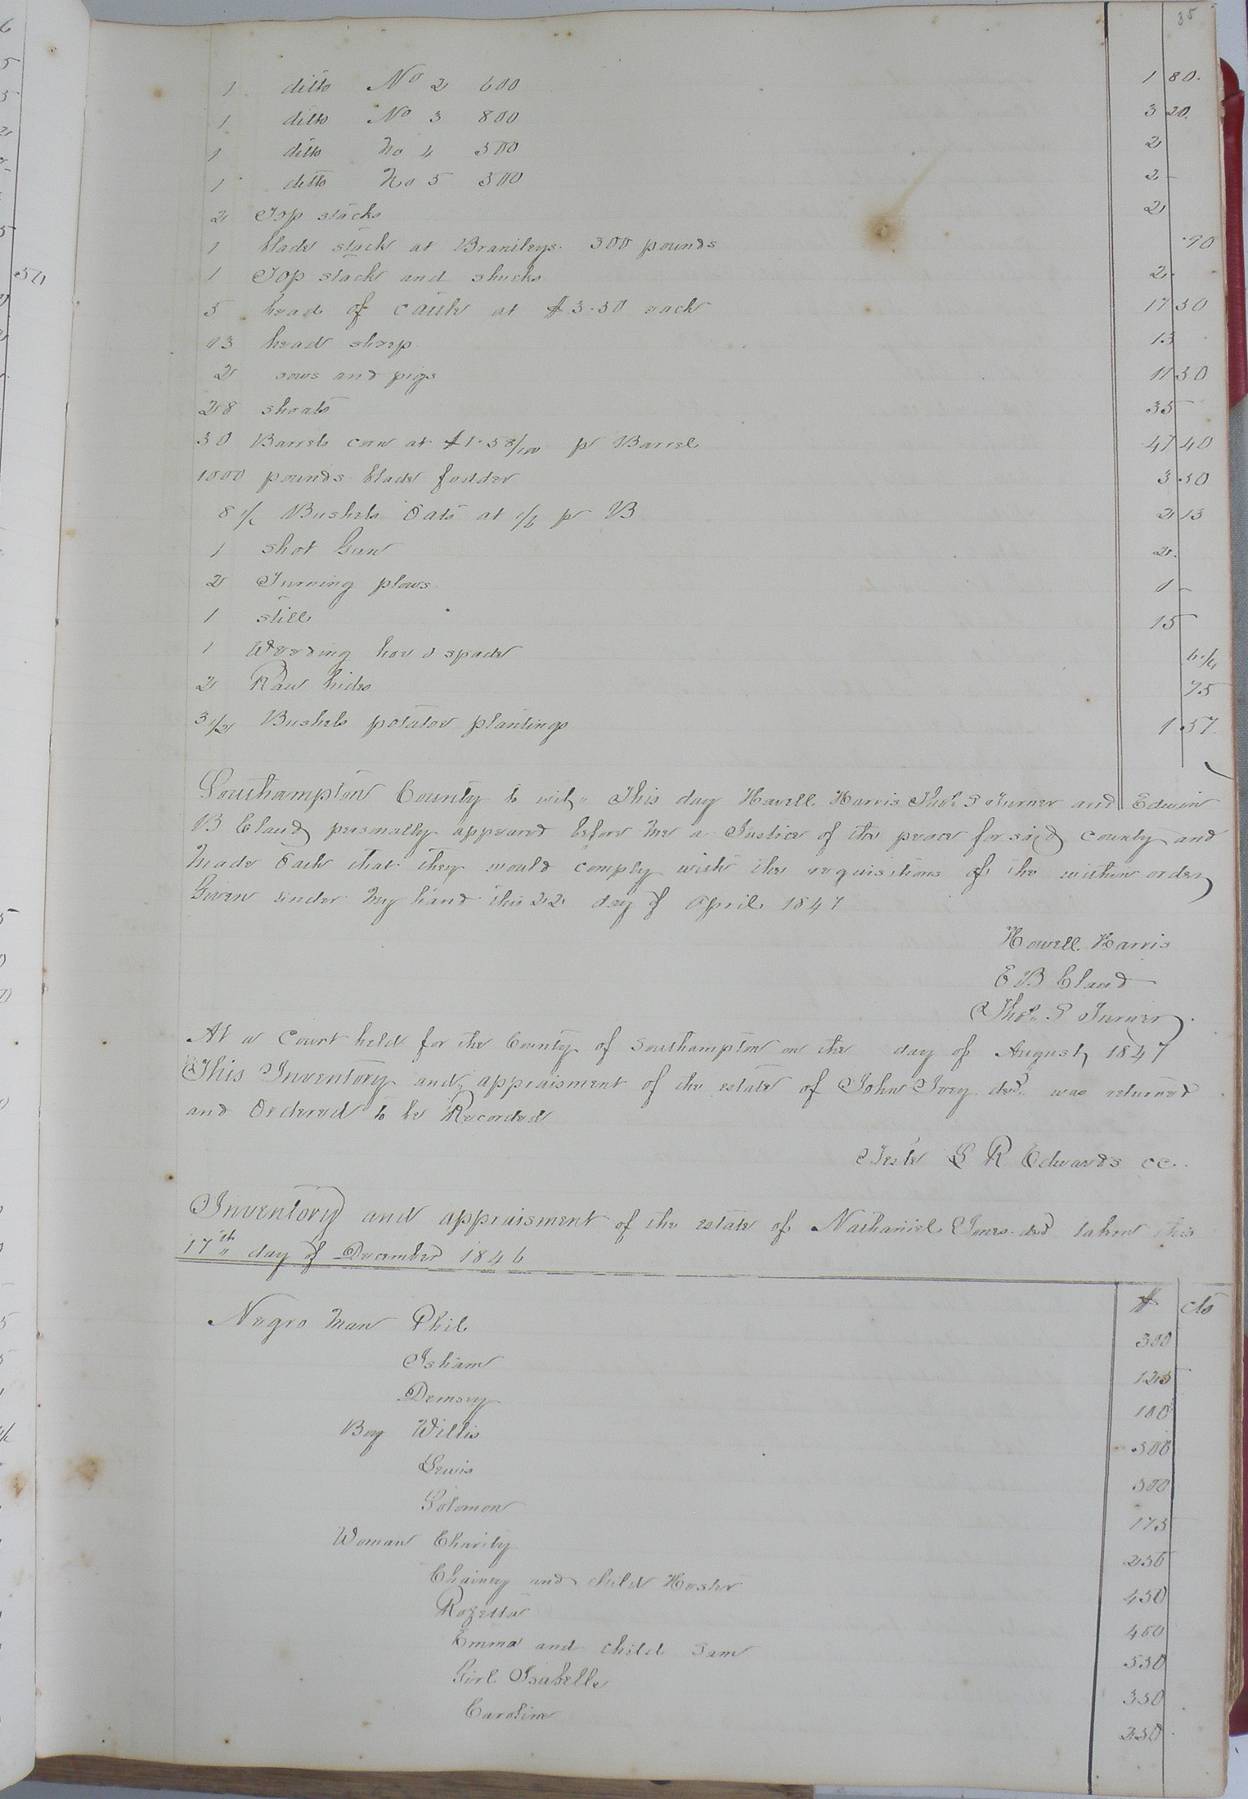 35
1 ditto No 2 600 1 80
1 ditto No 3 800 3 20
1 ditto No 4 500 2
1 ditto No 5 500 2
2 Top stacks 2
1 blade stack at Brantleys 300 pounds 90
1 Top stack and shucks 2
5 head of cattle at $3.50 each 17 50
13 head sheep 13
2 sows and pigs 11 50
28 shoats 35
30 Barrels corn at $1.58/100 pr Barrel 47 40
1000 pounds blade fodder 3 50
8 1/2 Bushels Oats at 1/6 pr B 2 13
1 shot Gun 2
2 Turning plows 1
1 still 15
1 Weeding hoe & spade
2 Raw hides 75
3 1/2 Bushels potatoe plantings 1 57
Southampton County to wit, This day Howell Harris Thos. S Turner and Edwin
B Claud personally appeared before me a Justice of the peace for said county and
made Oath that they would comply with the requisitions of the within order
Given under my hand this 22 day of April 1847
Howell Harris
E B Claud
Thos. S Turner
At a Court held for the County of Southampton on the day of August 1847
This Inventory and appraisment of the estate of John Ivey decd. was returned
and Ordered to be Recorded
Teste L R Edwards CC.
Inventory and appraisment of the estate of Nathaniel Jones decd taken this
17th day of December 1846
$ cts
Negro man Phil 300
Isham 125
Demsey 180
Boy Willis 500
Lewis 500
Solomon 175
Woman Charity 250
Chainey and child Hester 450
Rozetta 400
Emma and child Sam 550
Girl Isabella 350
Caroline 250